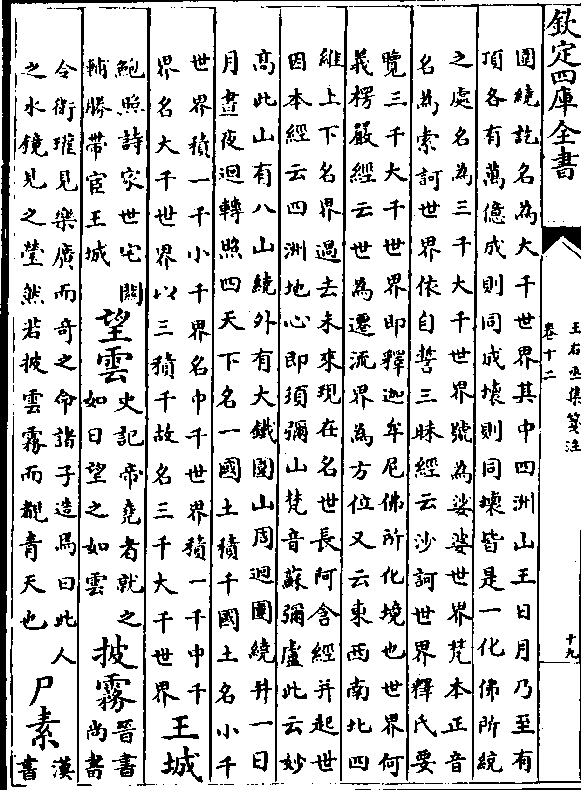 欽定四庫全書
王右丞集箋注
卷十二
十九
圍繞訖名為大千世界其中四洲山王日月乃至有
頂各有萬億成則同成壞則同壞皆是一化佛所統
之處名為三千大千世界號為娑婆世界梵本正音
名為索訶世界依自誓三昧經云沙訶世界釋氏要
覽三千大千世界即釋迦牟尼佛所化境也世界何
義楞嚴經云世為遷流界為方位又云東西南北四
維上下名界過去未來現在名世長阿含經并起世
因本經云四洲地心即須彌山梵音蘇彌盧此云妙
高此山有八山繞外有大鐵圍山周迴圍繞并一日
月晝夜迴轉照四天下名一國土積千國土名小千
世界積一千小千界名中千世界積一千中千
界名大千世界以三積千故名三千大千世界
王城
鮑照詩家世宅關
輔勝帶宦王城
望雲
史記帝堯者就之
如日望之如雲
披霧
晉書
尚書
令衛瓘見樂廣而奇之命諸子造焉曰此人
之水鏡見之瑩然若披雲霧而覩青天也
尸素
漢
書